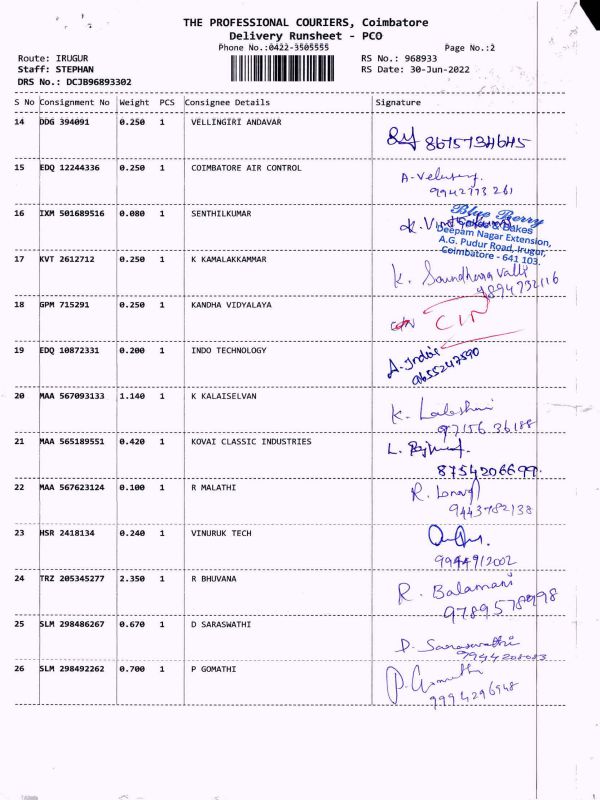 THE PROFESSIONAL COURIERS, Coimbatore
Delivery Runsheet - PCO
Phone No.:0422-3505555
Page No.:2
Route: IRUGUR
RS No.: 968933
Staff: STEPHAN
RS Date: 30-Jun-2022
DRS No.: DCJB96893302
S No Consignment No Weight PCS Consignee Details Signature
14 DDG 394091 0.250 1 VELLINGIRI ANDAVAR
15 EDQ 12244336 0.250 1 COIMBATORE AIR CONTROL
A. Velusamy.
9942773 261
16 IXM 501689516 0.080 1 SENTHILKUMAR
Blue Berry
& Bakes
Deepam Nagar Extension,
A.G. Pudur Road, Irugur,
Coimbatore - 641 103.
17 KVT 2612712 0.250 1 K KAMALAKKAMMAR
K. Soundhara Valli
9894732116
18 GPM 715291 0.250 1 KANDHA VIDYALAYA
19 EDQ 10872331 0.200 1 INDO TECHNOLOGY
9655247590
20 MAA 567093133 1.140 1 K KALAISELVAN
97156 36188
21 MAA 565189551 0.420 1 KOVAI CLASSIC INDUSTRIES
8754206699
22 MAA 567623124 0.100 1 R MALATHI
9443782138
23 HSR 2418134 0.240 1 VINURUK TECH
9944912002
24 TRZ 205345277 2.350 1 R BHUVANA
R. Balamani
25 SLM 298486267 0.670 1 D SARASWATHI
D. Saraswathi
26 SLM 298492262 0.700 1 P GOMATHI
P. Gomathi
9994296948